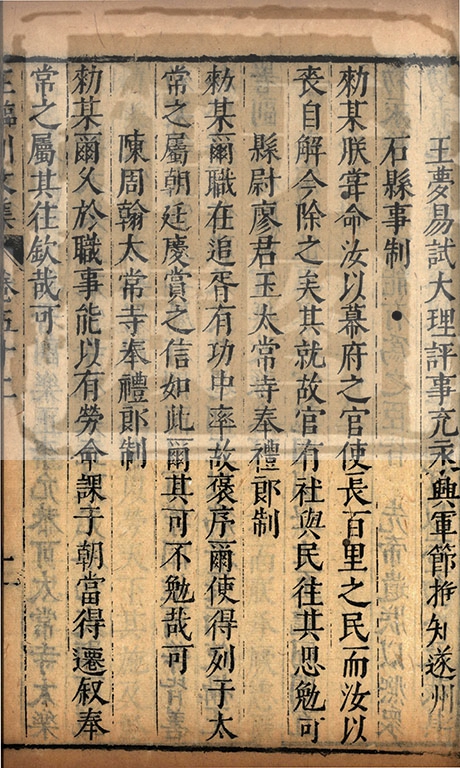 王夢易試大理評事充永興軍節推知遂州
石縣事制
勑某朕嘗命汝以幕府之官使長百里之民而汝以
喪自解今除之矣其就故官有社與民往其思勉可
縣尉廖君玉太常寺奉禮郎制
勑某爾職在追胥有功中率故褒序爾使得列于太
常之屬朝廷慶賞之信如此爾其可不勉哉可
陳周翰太常寺奉禮郎制
勑某爾久於職事能以有勞命課于朝當得遷叙奉
常之屬其往欽哉可
王臨川文集 卷五十二 十一